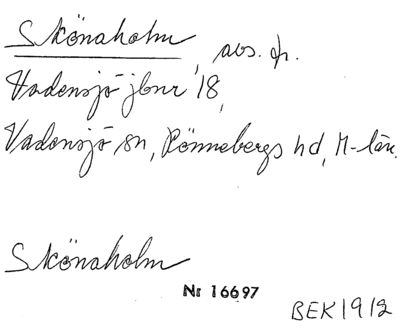 Skönaholm, avs. fr.
Vadensjö jbnr 18,
Vadensjö sn, Rönnebergs hd, M-län.
Skönaholm
Nr 16697
BEK1912